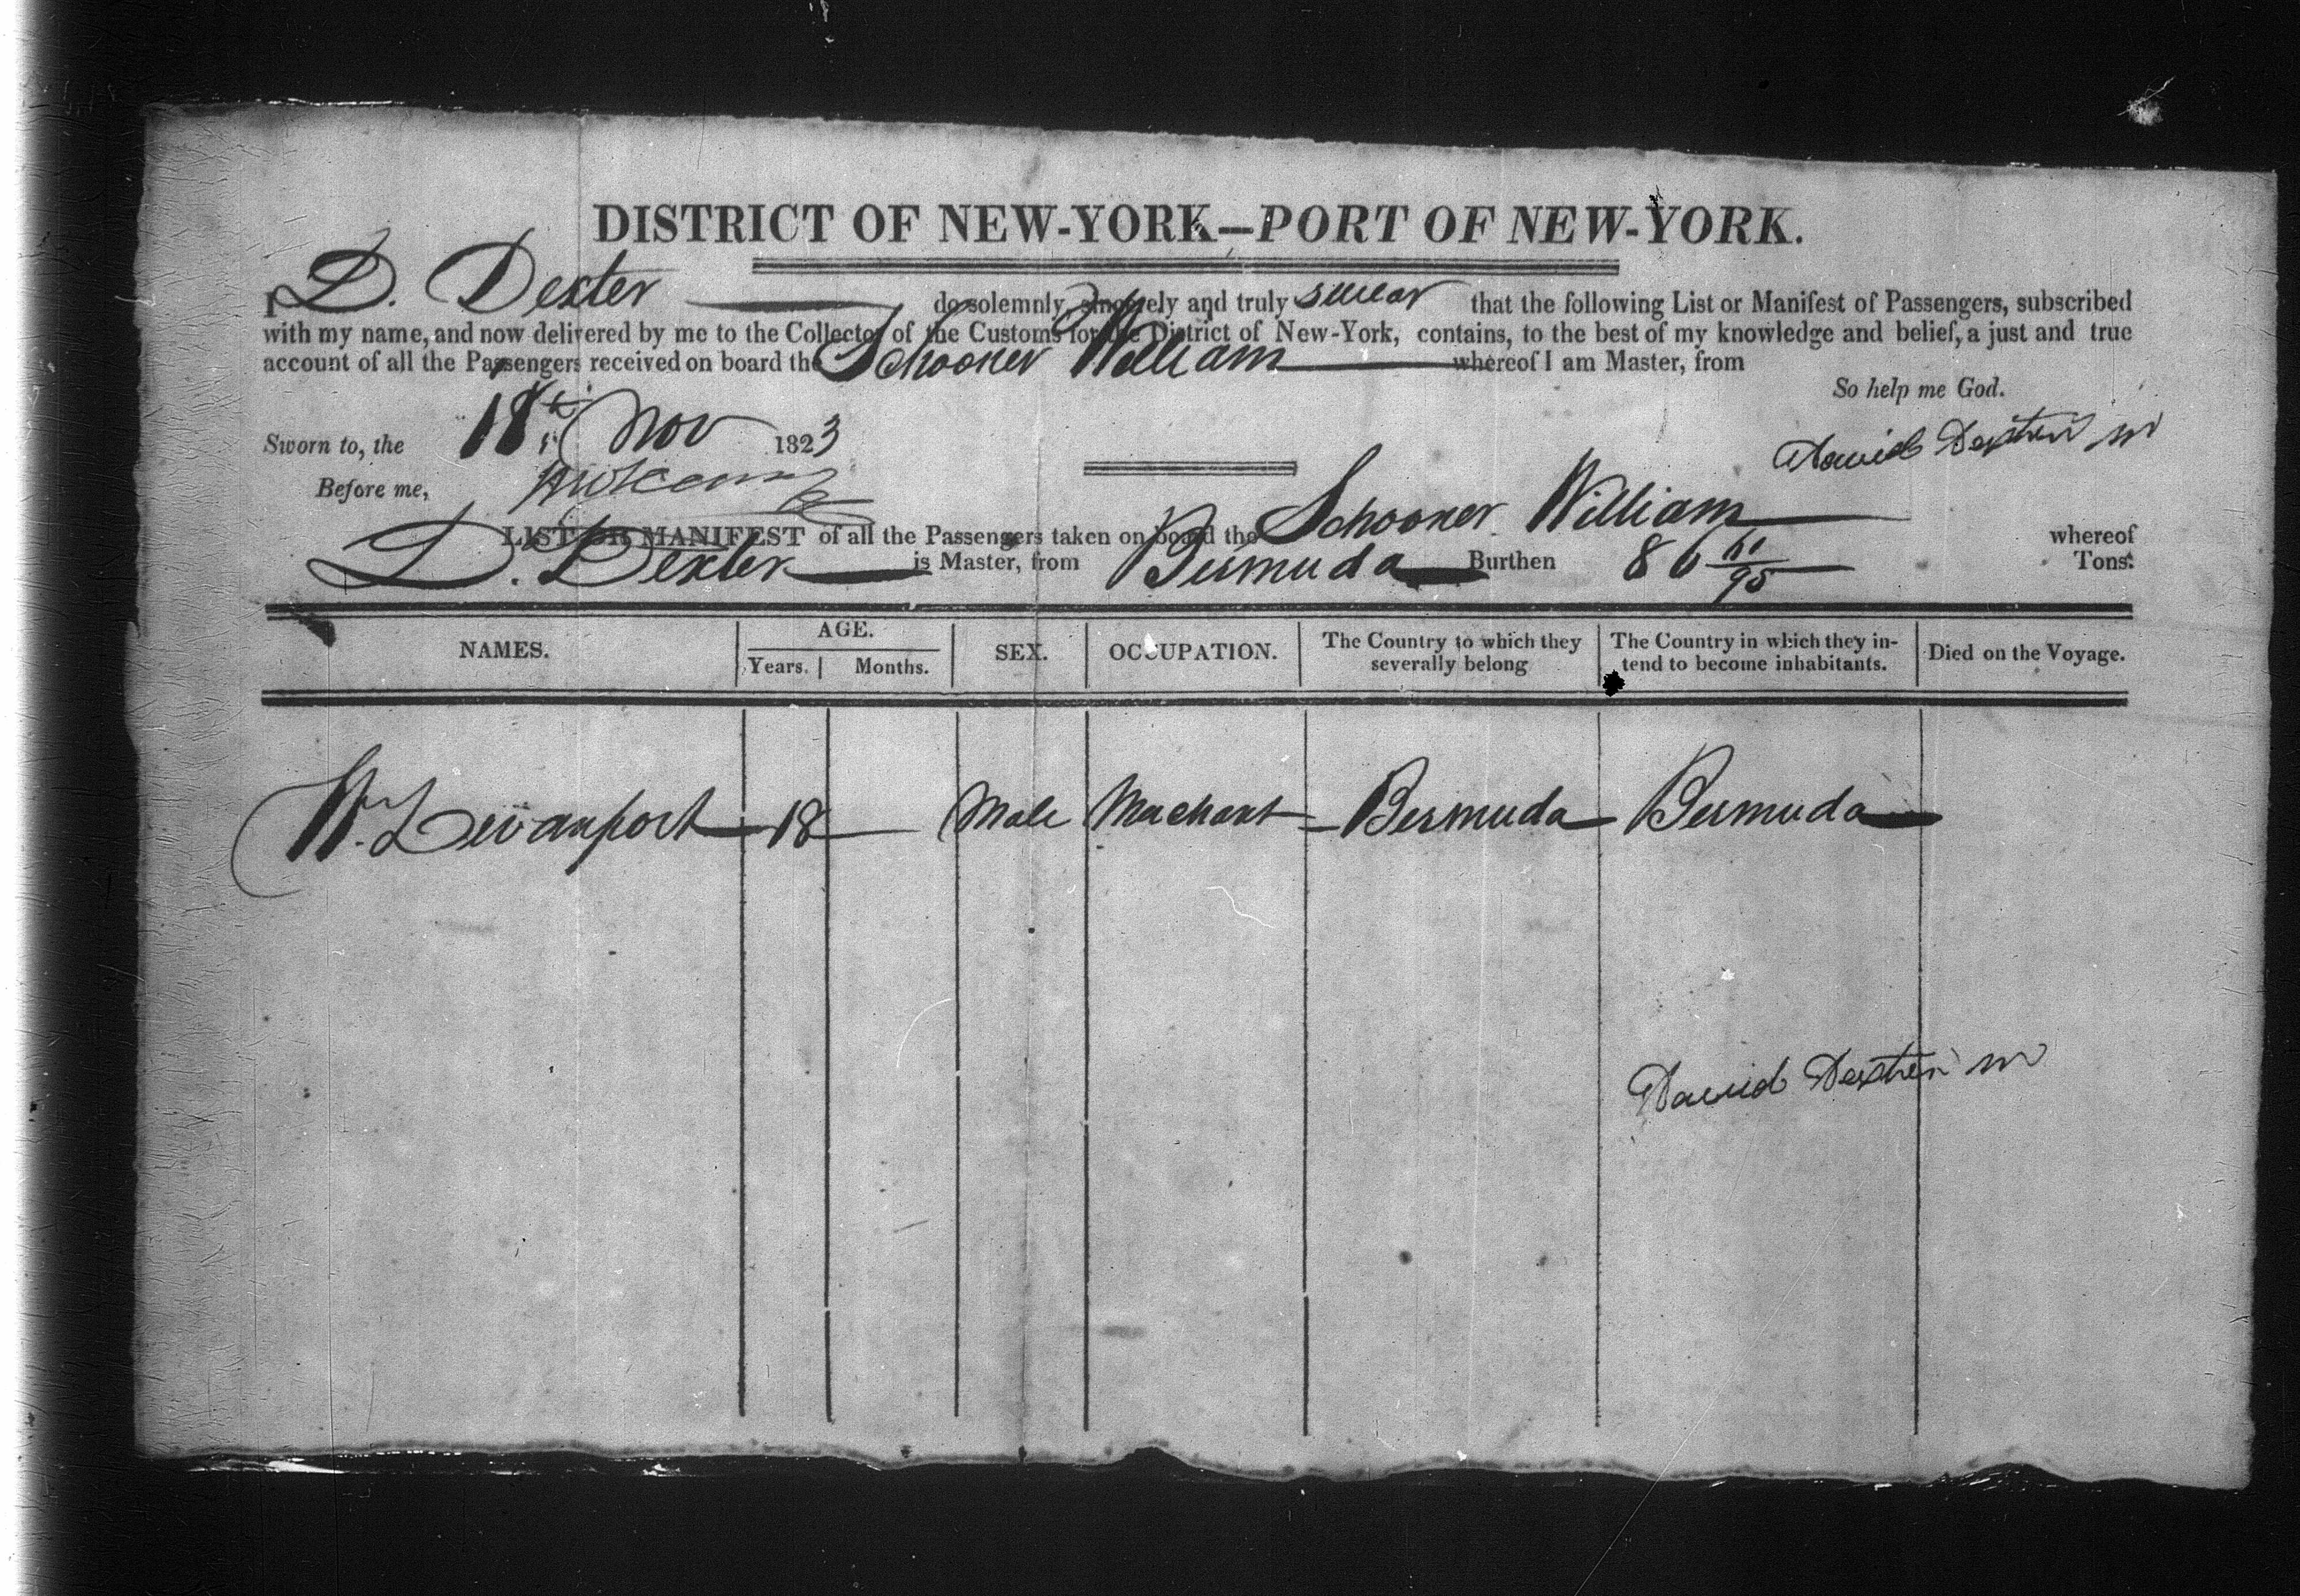 DISTRICT OF NEW-YORK—PORT OF NEW-YORK.
I D. Dexter do solemnly, sincerely and truly swear that the following List or Manifest of Passengers, subscribed
with my name, and now delivered by me to the Collector of the Customs for the District of New-York, contains, to the best of my knowledge and belief, a just and true
account of all the Passengers received on board the Schooner William whereof I am Master, from
So help me God.
Sworn to, the 18th Nov 1823
David Dexter
Before me,
LIST OR MANIFEST of all the Passengers taken on board the Schooner William whereof
D. Dexter is Master, from Bermuda Burthen 86 61/95 Tons.
NAMES. AGE. Years. Months. SEX. OCCUPATION. The Country to which they severally belong The Country in which they intend to become inhabitants. Died on the Voyage.
W. Devanport 18 Male Machant Bermuda Bermuda
David Dexter